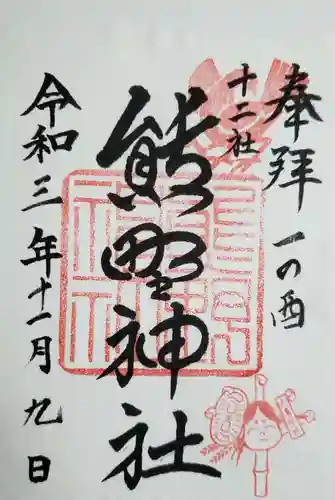 奉拝 一の酉
十二社
熊野神社
令和三年十一月九日